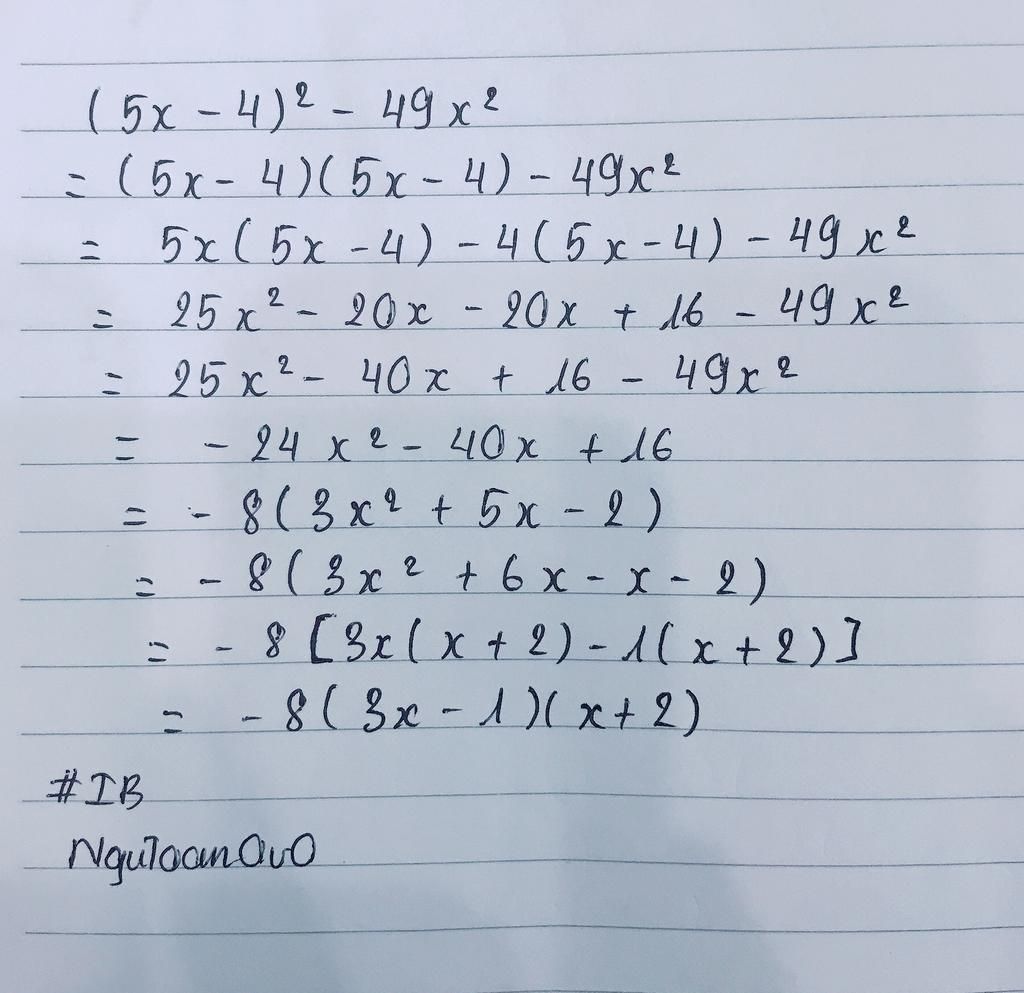 (5x - 4)² - 49x²
= (5x - 4)(5x - 4) - 49x²
= 5x(5x - 4) - 4(5x - 4) - 49x²
= 25x² - 20x - 20x + 16 - 49x²
= 25x² - 40x + 16 - 49x²
= - 24x² - 40x + 16
= - 8(3x² + 5x - 2)
= - 8(3x² + 6x - x - 2)
= - 8[3x(x + 2) - 1(x + 2)]
= - 8(3x - 1)(x + 2)
#IB
NguToanOvO